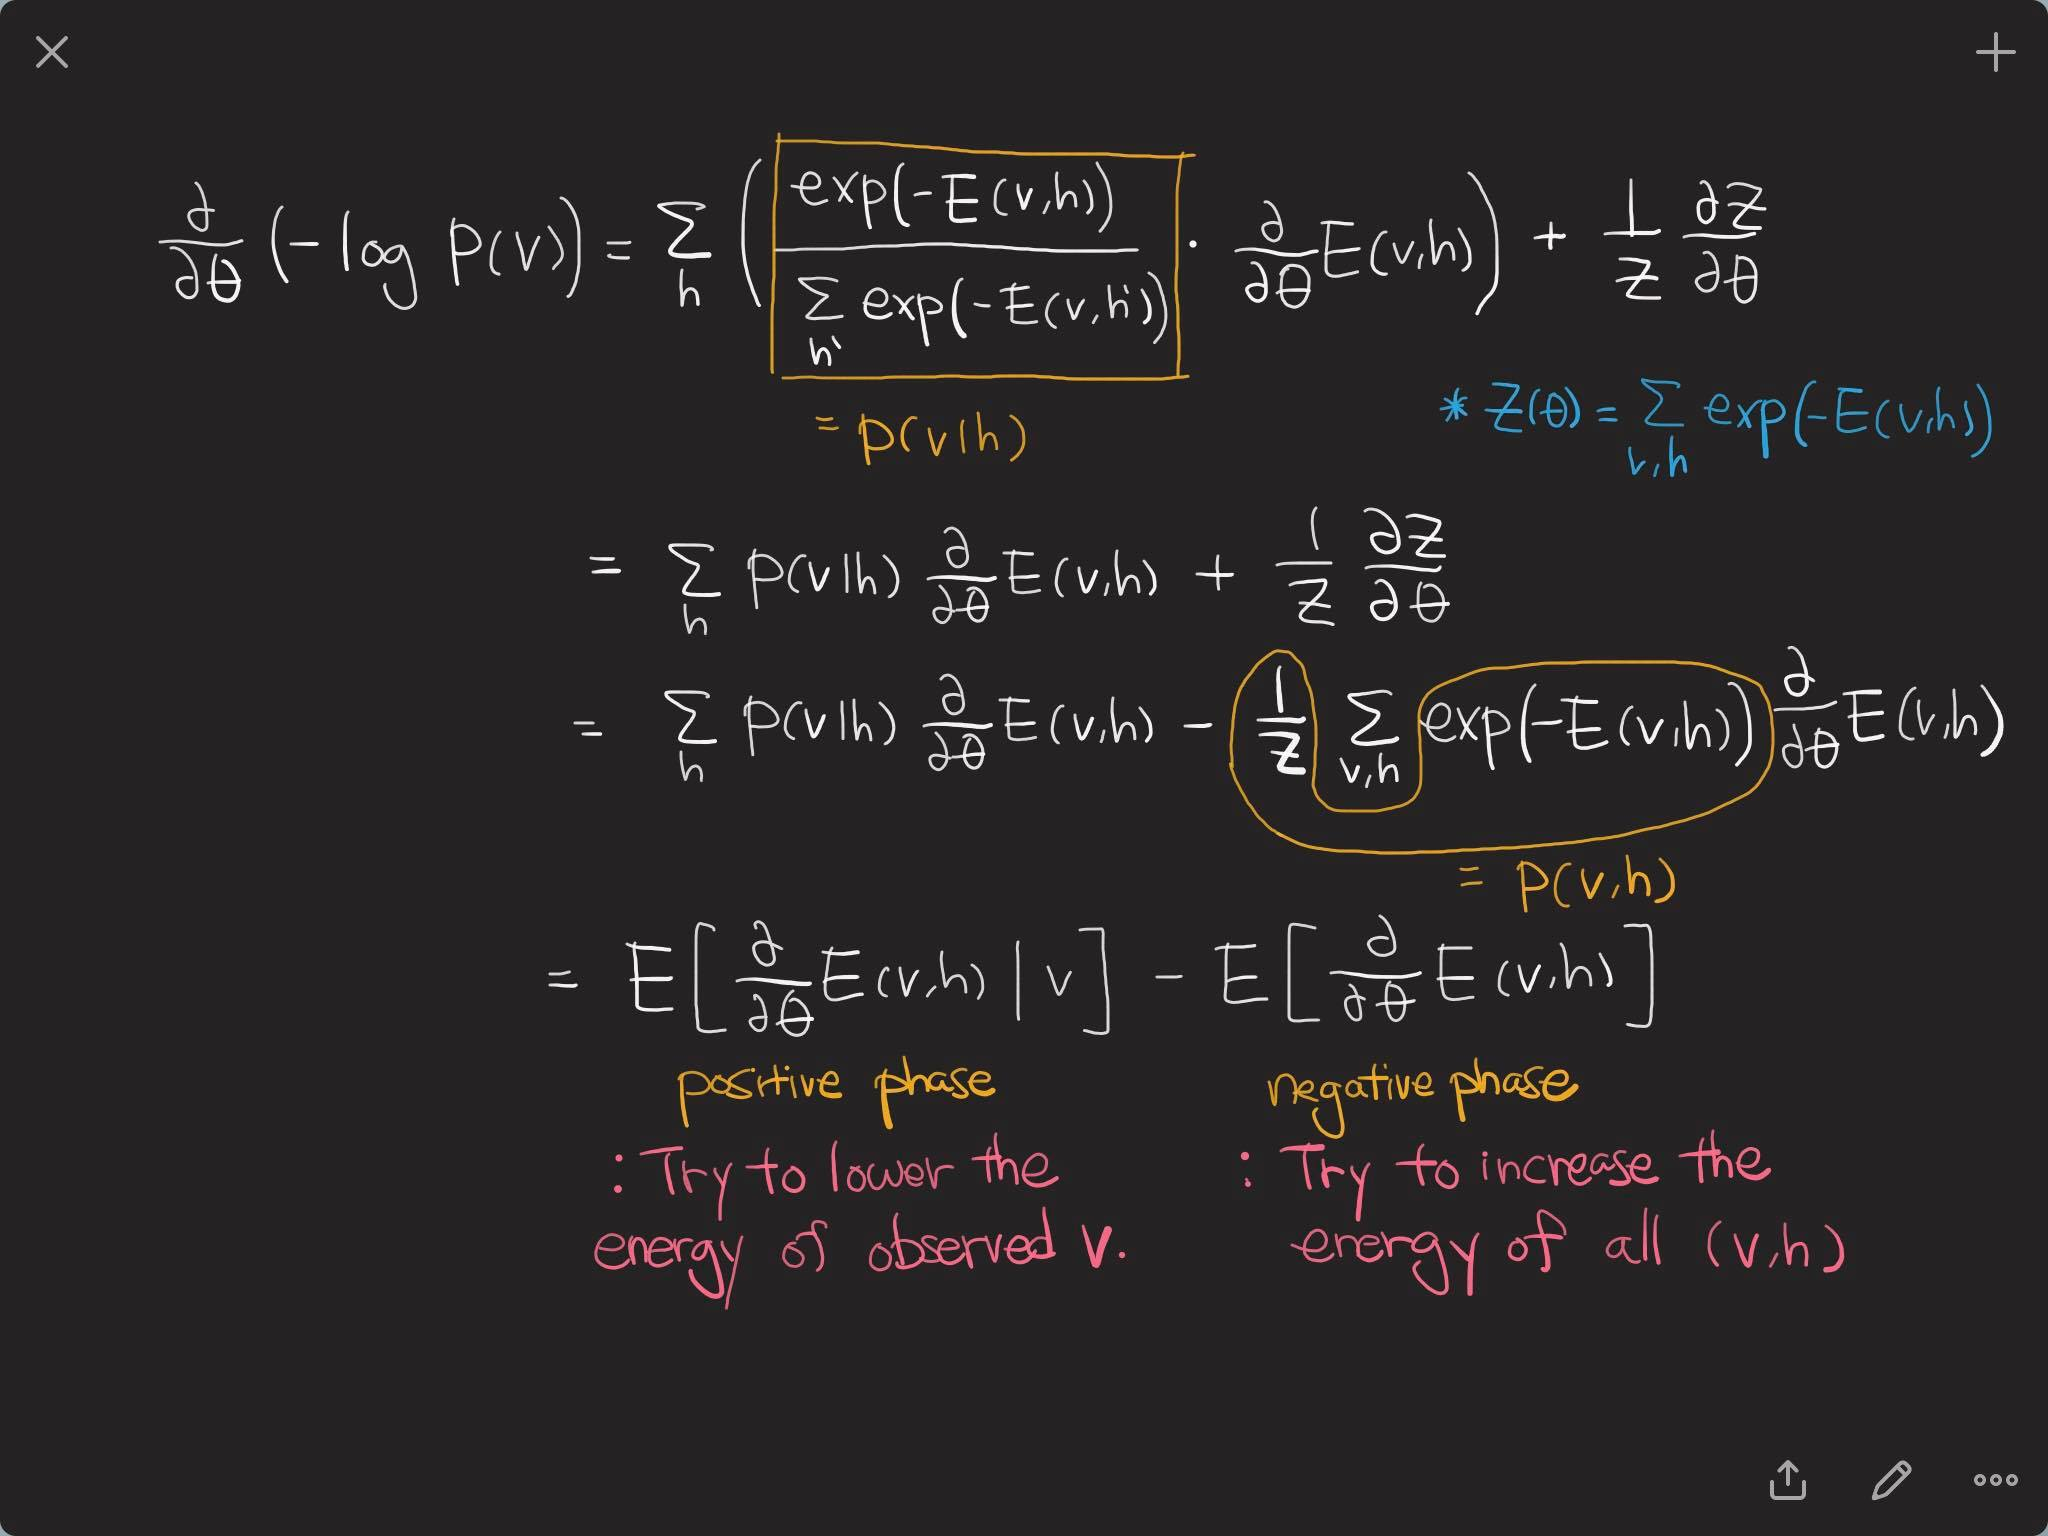 ∂/∂θ (-log P(v)) = Σ_h ( exp(-E(v,h)) / Σ_h' exp(-E(v,h')) · ∂/∂θ E(v,h) ) + 1/Z ∂Z/∂θ
= p(v|h)
* Z(θ) = Σ_v,h exp(-E(v,h))
= Σ_h P(v|h) ∂/∂θ E(v,h) + 1/Z ∂Z/∂θ
= Σ_h P(v|h) ∂/∂θ E(v,h) - 1/Z Σ_v,h exp(-E(v,h)) ∂/∂θ E(v,h)
= P(v,h)
= E[ ∂/∂θ E(v,h) | v ] - E[ ∂/∂θ E(v,h) ]
positive phase
: Try to lower the
energy of observed v.
negative phase
: Try to increase the
energy of all (v,h)